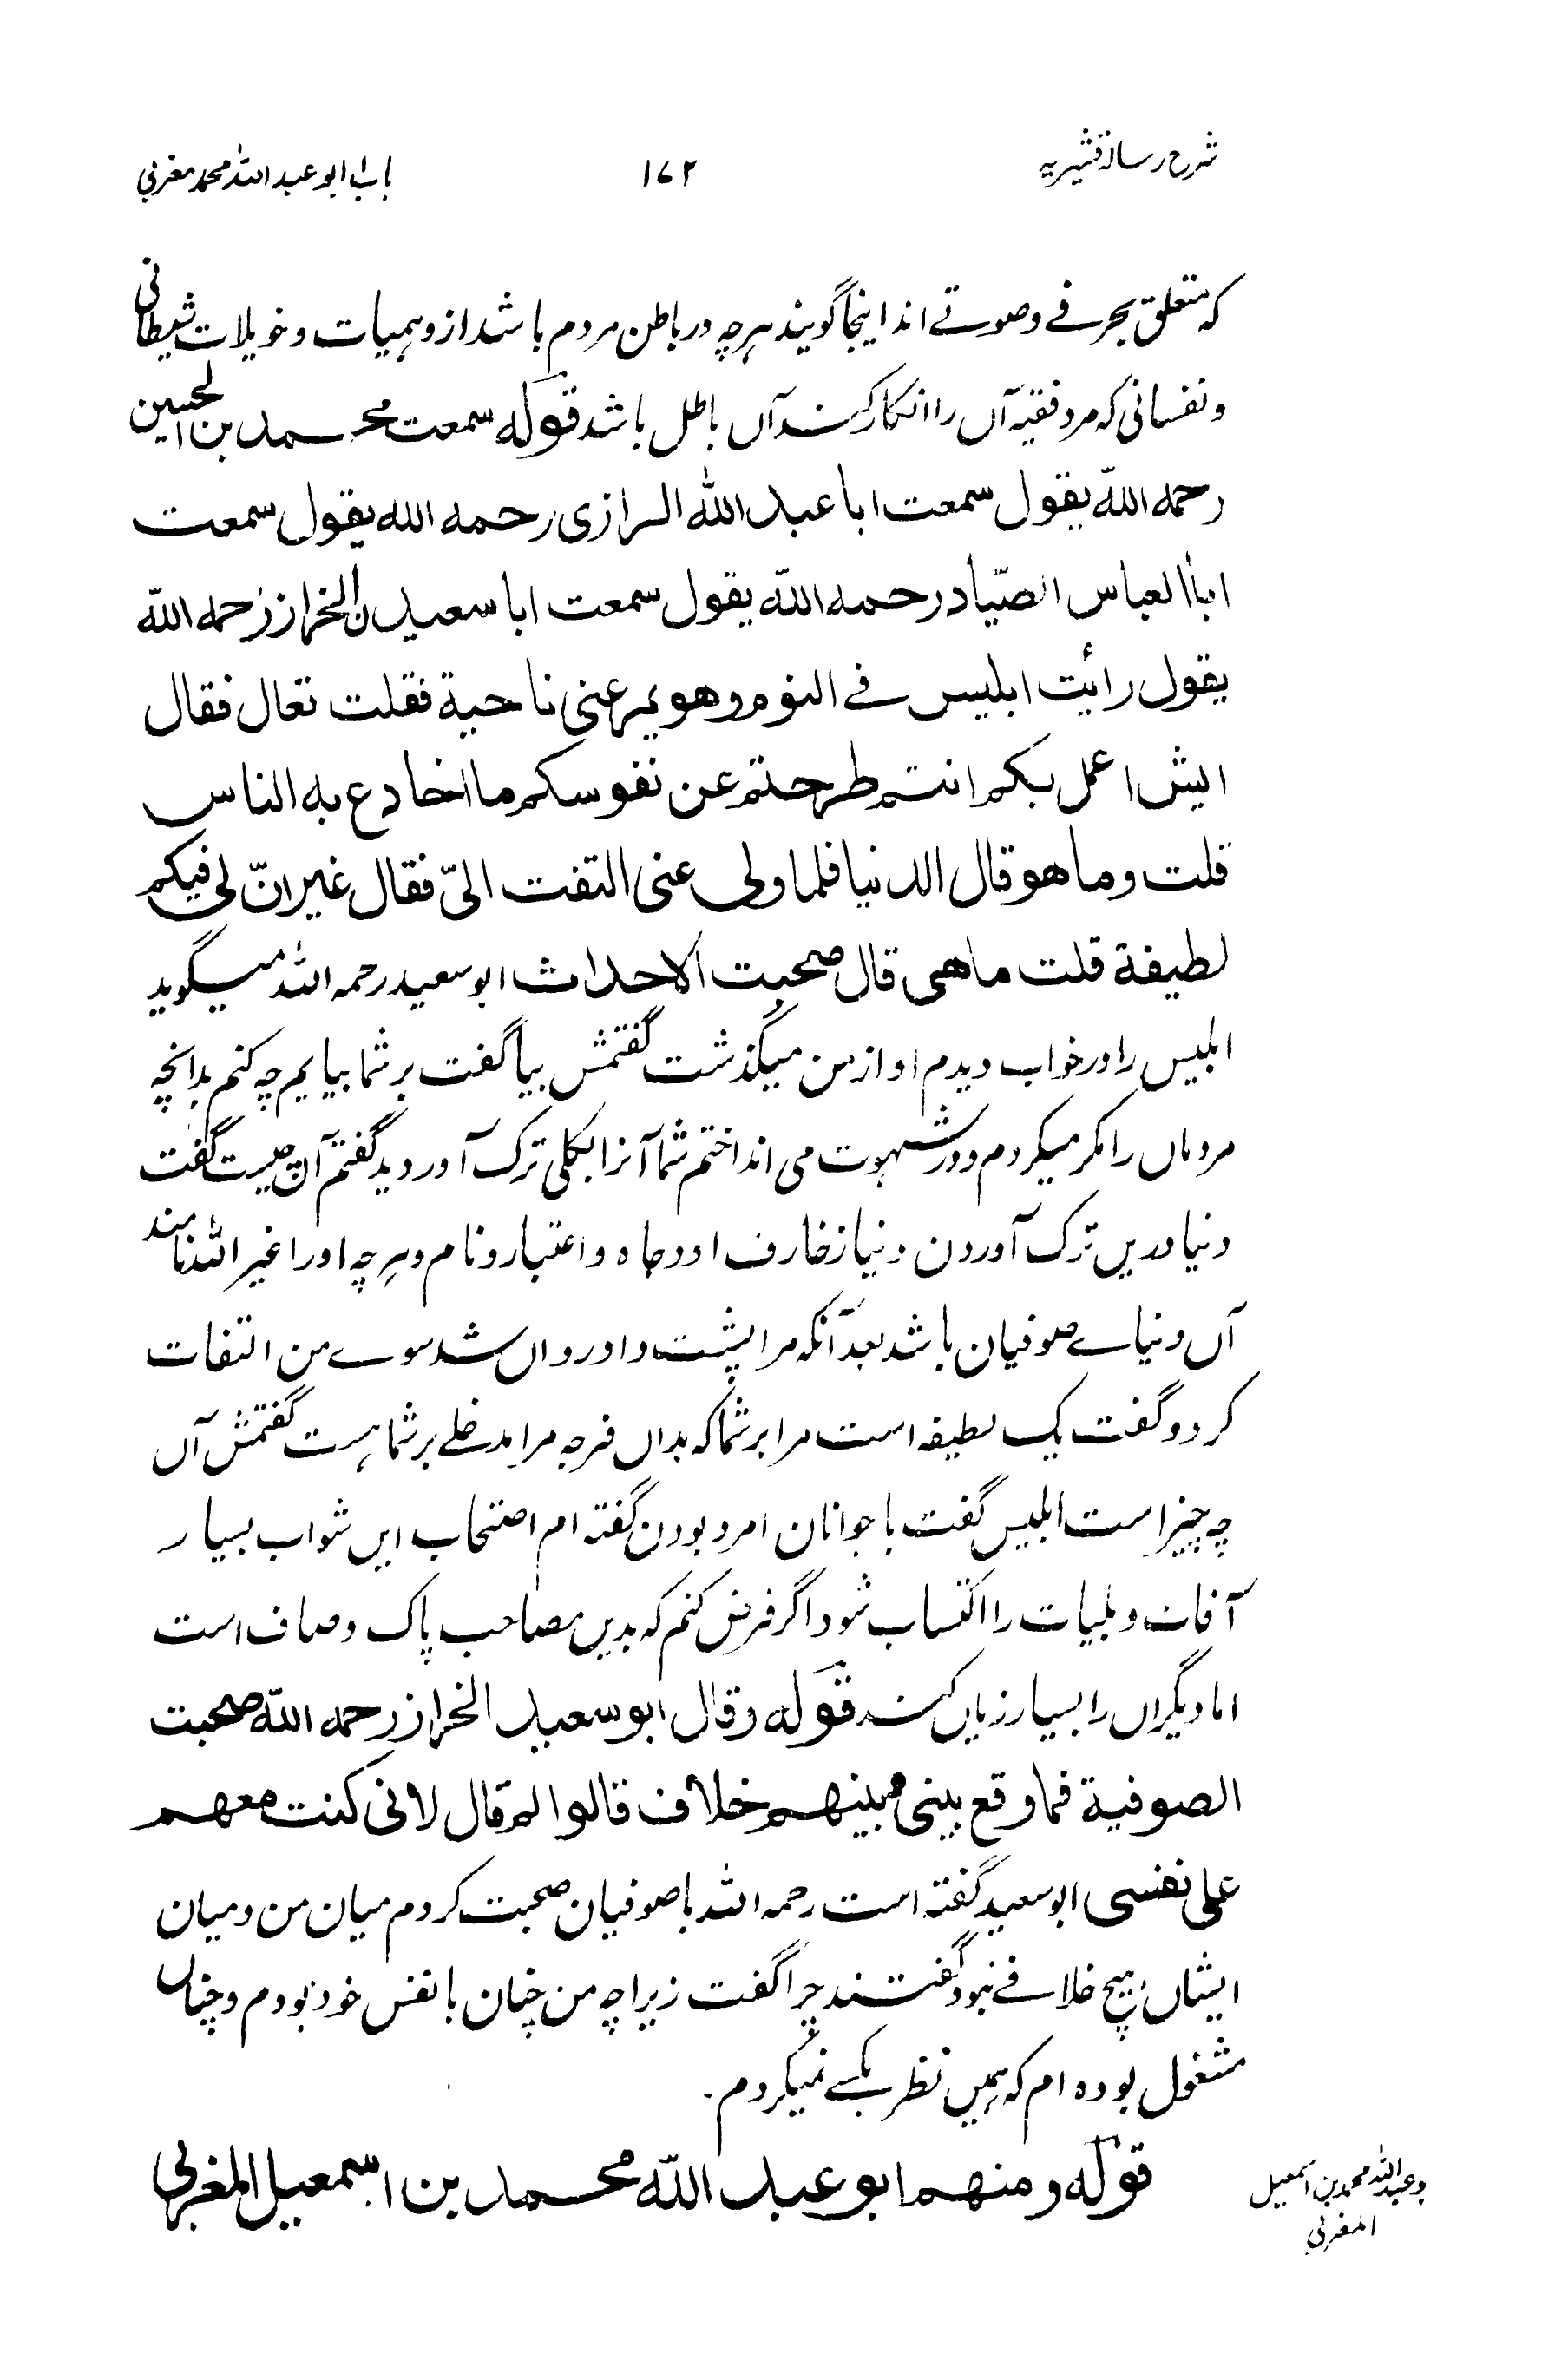 شرح رسالہ قشیریہ
۱۷۲
باب ابو عبد اللہ محمد مغربی
که متعلق بحرفے وصوتے اند اینجا گویند هرچه در باطن مردم باشد از وهمیات وخویلات شیطانی
ونفسانی که مرد فقیه آں را انکار کند آں باطل باشد قوله سمعت محمد بن الحسین
رحمه الله یقول سمعت ابا عبد الله الرازی رحمه الله یقول سمعت
ابا العباس الصیّاد رحمه الله یقول سمعت ابا سعید ن الخراز رحمه الله
یقول رأیت ابلیس فے النوم وهو یمر عنی ناحیة فقلت تعال فقال
ایش اعمل بکم انتم طرحتم عن نفوسکم ما اخادع به الناس
قلت وما هو قال الدنیا فلما ولی عنی التفت الیّ فقال غیر انّ لی فیکم
لطیفة قلت ما هی قال صحبت الاحداث ابو سعید رحمه الله میگوید
ابلیس را در خواب دیدم او از من میگذشت گفتمش بیا گفت بر شما بیایم چه کنم بدانچه
مردماں را مکر میکردم ودر شهوت می انداختم شما آنرا بکلی ترک آوردید گفتم آں چیست گفت
دنیا وریں ترک آوردن دنیا زخارف او وجاه واعتبار ونام وهرچه او را غیر الله نامند
آں دنیاے صوفیان باشد بعد آنکه مرا پشت داد رواں شد سوے من التفات
کرد وگفت یک لطیفه است مرا بر شما که بداں فرجه مرا مدخلے بر شما هست گفتمش آں
چه چیز است ابلیس گفت با جوانان امرد بودن گفته ام اصتحاب ایں شواب بسیار
آفات وبلیات را اکتساب شود اگر فرض کنم که بدیں مصاحب پاک وصاف است
اما دیگراں را بسیار زیاں کند قوله وقال ابو سعید الخراز رحمه الله صحبت
الصوفیة فما وقع بینی وبینهم خلاف قالوا لم قال لانی کنت معهم
علی نفسی ابو سعید گفته است رحمه الله با صوفیان صحبت کردم میان من ومیان
ایشاں هیچ خلافے نبود گفتند چرا گفت زیراچه من چنان با نفس خود بودم وچناں
مشغول بوده ام که همیں نظر بکسے نمیکردم.
قوله ومنهم ابو عبد الله محمد بن اسمعیل المغربی
وعبد الله محمد بن اسمعیل
المغربی